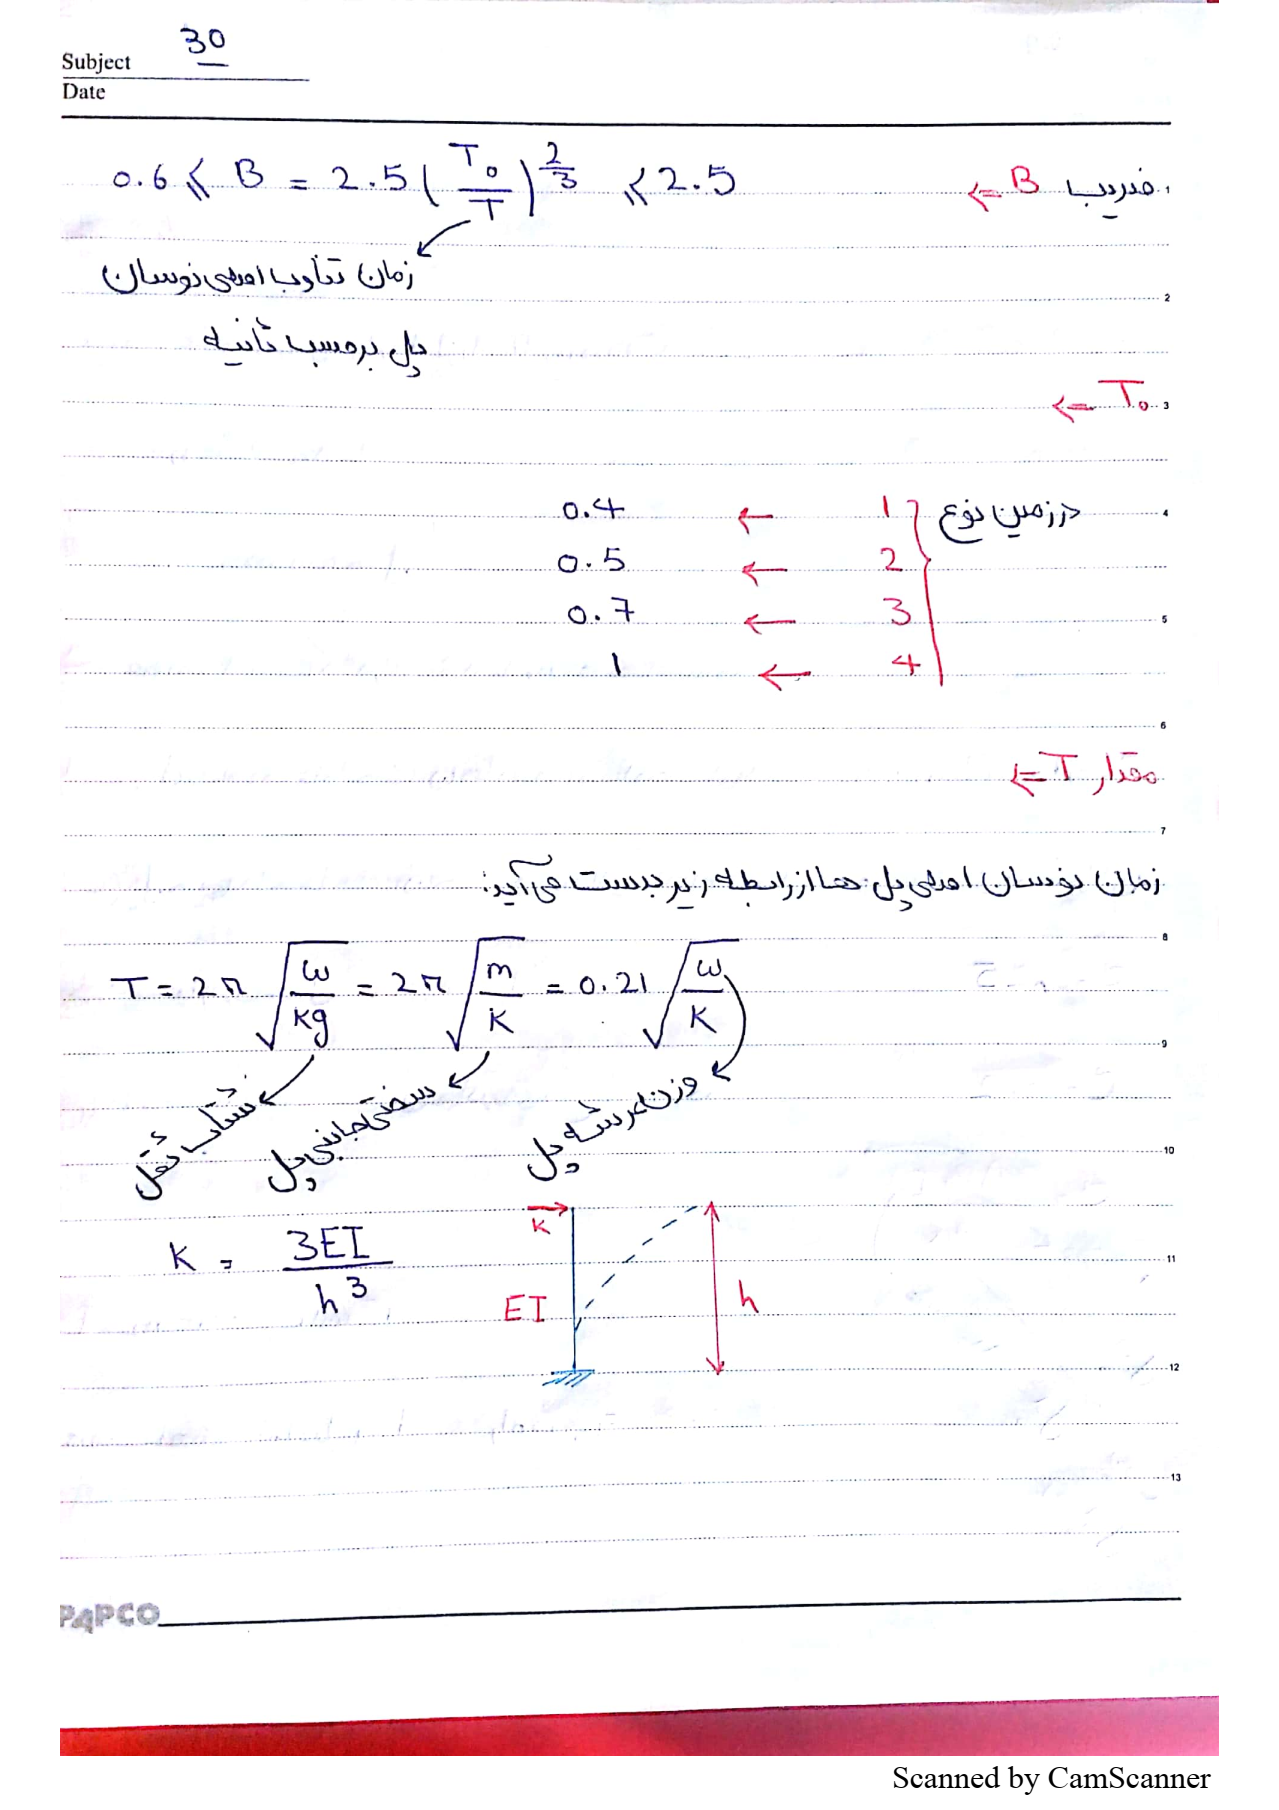 30
Subject
Date
ضریب B ←
0.6 ⩽ B = 2.5 (T₀/T)^(2/3) ⩽ 2.5
زمان تناوب اصلی نوسان
پل برحسب ثانیه
T₀ ←
در زمین نوع
1 ← 0.4
2 ← 0.5
3 ← 0.7
4 ← 1
مقدار T ←
زمان نوسان اصلی پل ها از رابطه زیر بدست می آید:
T = 2π √(w/kg) = 2π √(m/k) = 0.21 √(w/K)
شتاب ثقل
سختی جانبی پل
وزن عرشه پل
K = 3EI/h³
K
EI
h
1
2
3
4
5
6
7
8
9
10
11
12
13
PAPCO
Scanned by CamScanner